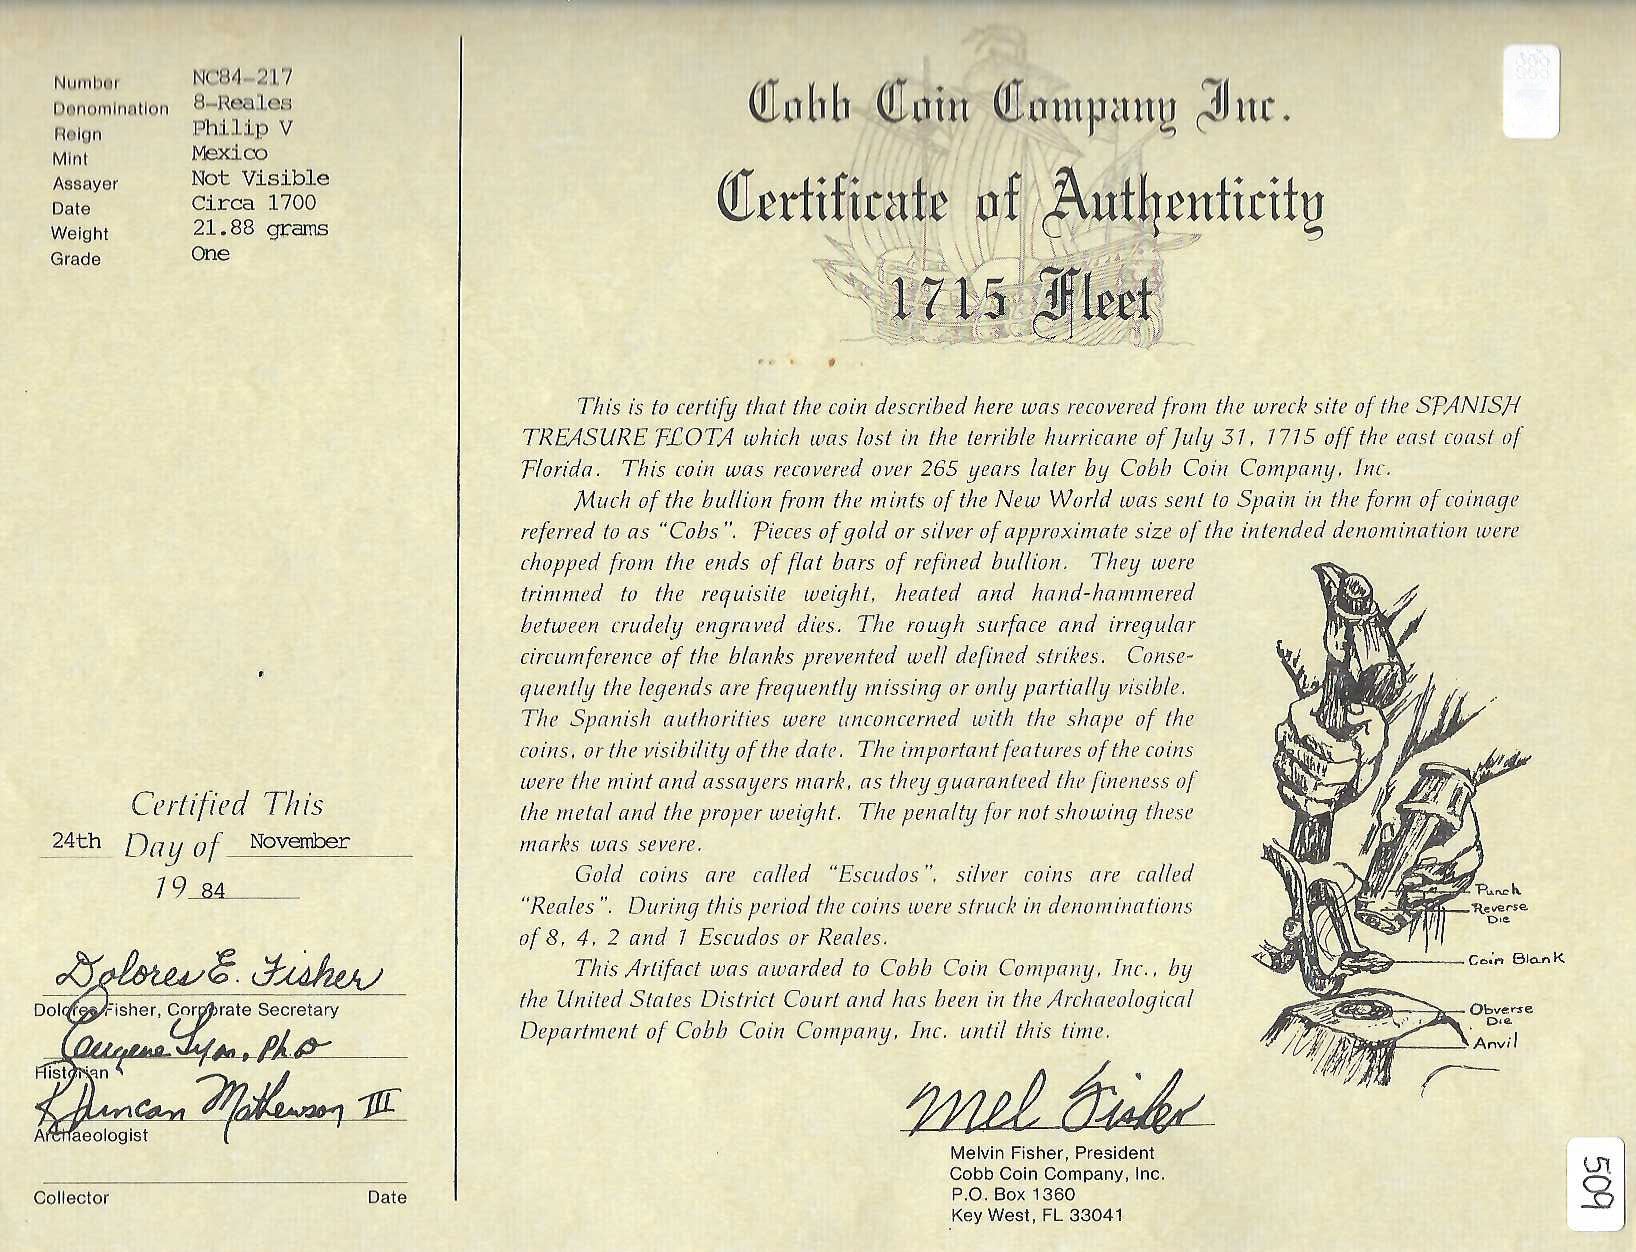 Number NC84-217
Denomination 8-Reales
Reign Philip V
Mint Mexico
Assayer Not Visible
Date Circa 1700
Weight 21.88 grams
Grade One
Certified This
24th Day of November
19 84
Dolores E. Fisher
Dolores Fisher, Corporate Secretary
Eugene Lyon, PhD
Historian
R Duncan Mathewson III
Archaeologist
Collector Date
Cobb Coin Company Inc.
Certificate of Authenticity
1715 Fleet
This is to certify that the coin described here was recovered from the wreck site of the SPANISH
TREASURE FLOTA which was lost in the terrible hurricane of July 31, 1715 off the east coast of
Florida. This coin was recovered over 265 years later by Cobb Coin Company, Inc.
Much of the bullion from the mints of the New World was sent to Spain in the form of coinage
referred to as “Cobs”. Pieces of gold or silver of approximate size of the intended denomination were
chopped from the ends of flat bars of refined bullion. They were
trimmed to the requisite weight, heated and hand-hammered
between crudely engraved dies. The rough surface and irregular
circumference of the blanks prevented well defined strikes. Conse-
quently the legends are frequently missing or only partially visible.
The Spanish authorities were unconcerned with the shape of the
coins, or the visibility of the date. The important features of the coins
were the mint and assayers mark, as they guaranteed the fineness of
the metal and the proper weight. The penalty for not showing these
marks was severe.
Gold coins are called “Escudos”, silver coins are called
“Reales”. During this period the coins were struck in denominations
of 8, 4, 2 and 1 Escudos or Reales.
This Artifact was awarded to Cobb Coin Company, Inc., by
the United States District Court and has been in the Archaeological
Department of Cobb Coin Company, Inc. until this time.
Punch
Reverse
Die
Coin Blank
Obverse
Die
Anvil
Mel Fisher
Melvin Fisher, President
Cobb Coin Company, Inc.
P.O. Box 1360
Key West, FL 33041
509